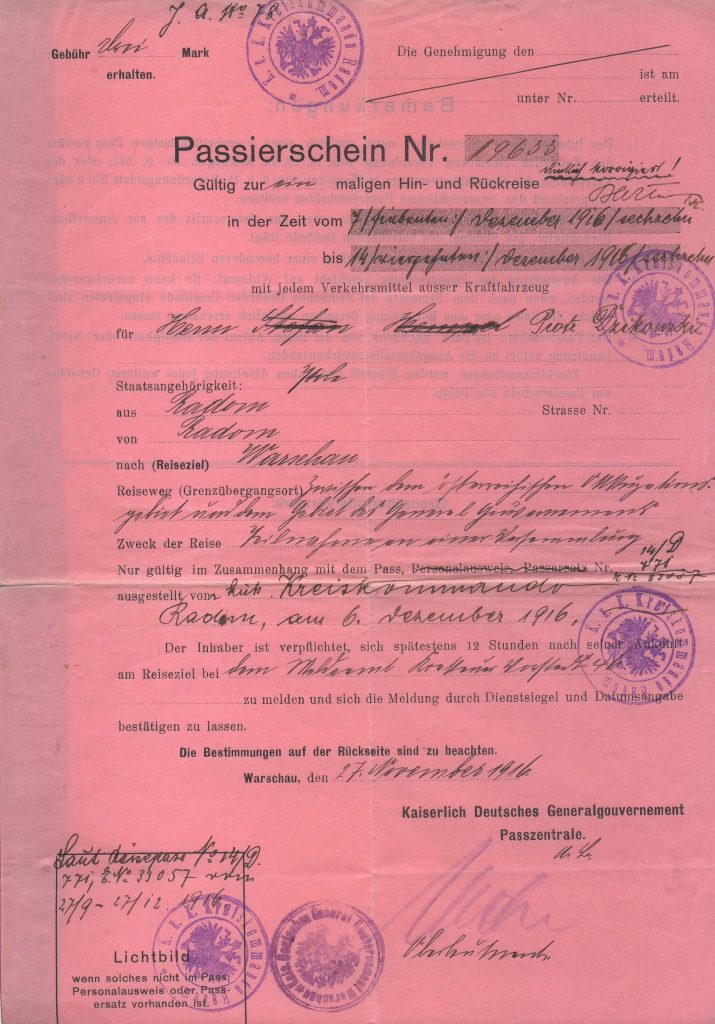 J. A. No 78
Gebühr drei Mark
erhalten.
Die Genehmigung den
ist am
unter Nr. erteilt.
Passierschein Nr. 19633
Gültig zur ein maligen Hin- und Rückreise
amtlich korrigiert!
in der Zeit vom 7/siebenten/ Dezember 1916/sechzehn
bis 14/vierzehnten/ Dezember 1916/sechzehn
mit jedem Verkehrsmittel ausser Kraftfahrzeug
für Herrn Stefan Hempel Piotr
Staatsangehörigkeit: Pole
aus Radom Strasse Nr.
von Radom
nach (Reiseziel) Warschau
Reiseweg (Grenzübergangsort) Zwischen dem österreichischen Okkupations-
gebiet und dem Gebiet des General Gouvernements
Zweck der Reise Teilnahme an einer Versammlung
14/D
Nur gültig im Zusammenhang mit dem Pass, Personalausweis, Passersatz Nr. 771
E. No 33057
ausgestellt von kuk. Kreiskommando
Radom, am 6. Dezember 1916,
Der Inhaber ist verpflichtet, sich spätestens 12 Stunden nach seiner Ankunft
am Reiseziel bei dem Meldeamt
zu melden und sich die Meldung durch Dienstsiegel und Datumsangabe
bestätigen zu lassen.
Die Bestimmungen auf der Rückseite sind zu beachten.
Warschau, den 27. November 1916
Kaiserlich Deutsches Generalgouvernement
Passzentrale.
Laut Reisepass No 14/D.
771, E. No 33057 vom
27/9 - 27/12. 1916
Lichtbild
wenn solches nicht im Pass,
Personalausweis oder Pass-
ersatz vorhanden ist.
K. u. K. Kreiskommando Radom
K. u. K. Kreiskommando Radom
K. u. K. Kreiskommando Radom
K. u. K. Kreiskommando Radom